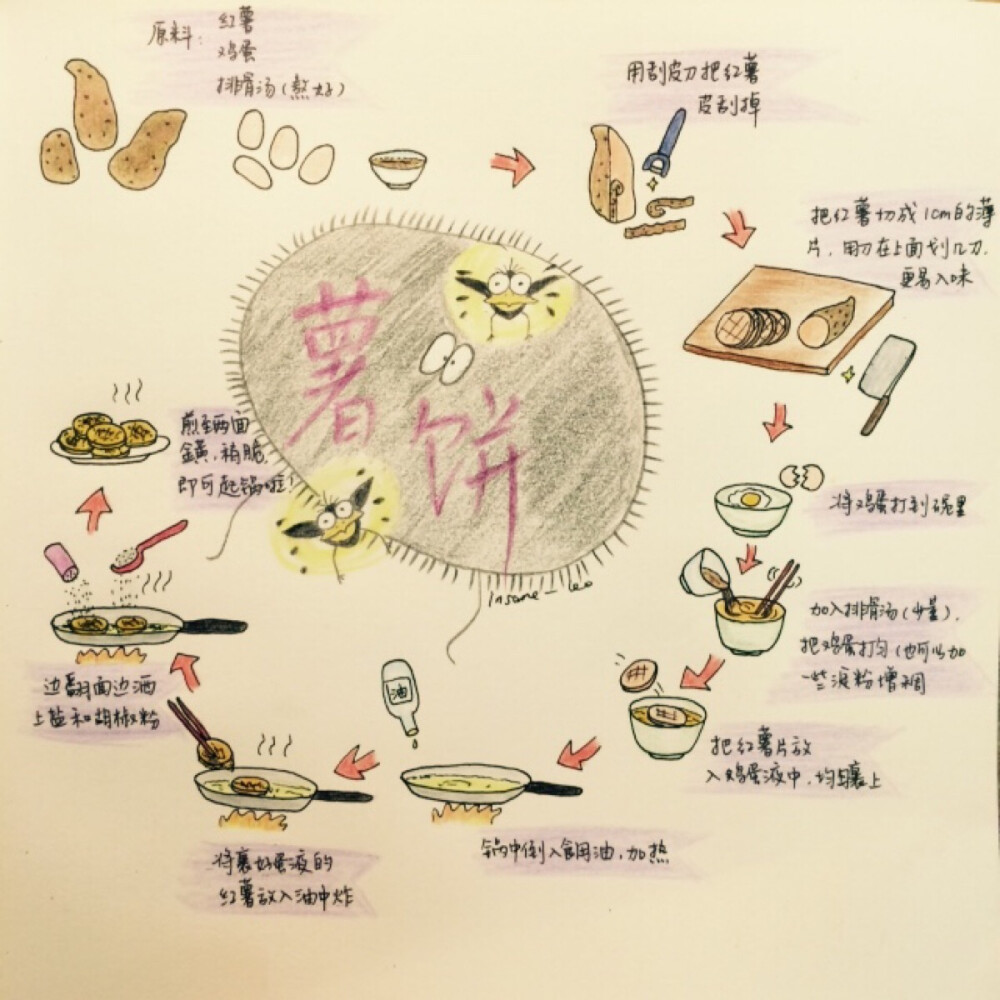 原料：红薯
鸡蛋
排骨汤(熬好)
用刮皮刀把红薯
皮刮掉
把红薯切成1cm的薄
片，用刀在上面划几刀，
更易入味
将鸡蛋打到碗里
加入排骨汤(少量)，
把鸡蛋打匀(也可以加
一些淀粉增稠
把红薯片放
入鸡蛋液中，均匀裹上
油
锅中倒入食用油，加热
将裹好蛋液的
红薯放入油中炸
边翻面边洒
上盐和胡椒粉
煎至两面
金黄，稍脆，
即可起锅啦！
薯
饼
Insane_Leo